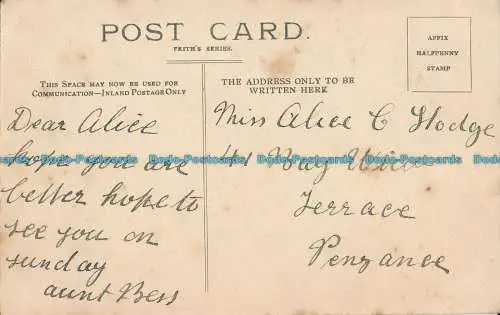 POST CARD.
FRITH'S SERIES.
AFFIX
HALFPENNY
STAMP
THIS SPACE MAY NOW BE USED FOR
COMMUNICATION—INLAND POSTAGE ONLY
THE ADDRESS ONLY TO BE
WRITTEN HERE
Dear Alice
hope you are
better hope to
see you on
sunday
aunt Bess
Miss Alice C Hodge
41 Bay
Terrace
Penzance
Dodo-Postcards Dodo-Postcards Dodo-Postcards Dodo-Postcards Dodo-Postcards